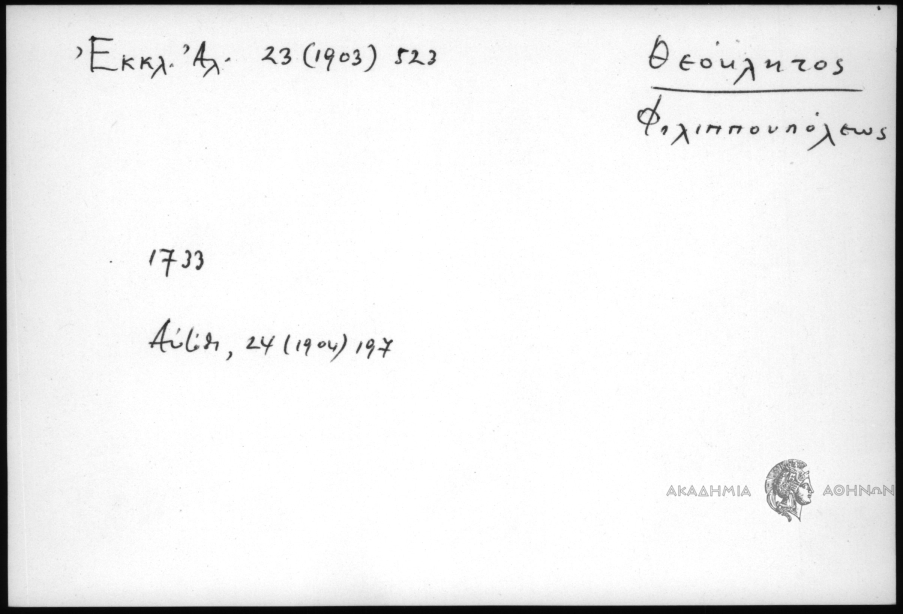 Ἐκκλ. Ἀλ. 23 (1903) 523
Θεόκλητος
Φιλιππουπόλεως
1733
Αὐτόθι, 24 (1904) 197
ΑΚΑΔΗΜΙΑ ΑΘΗΝΩΝ